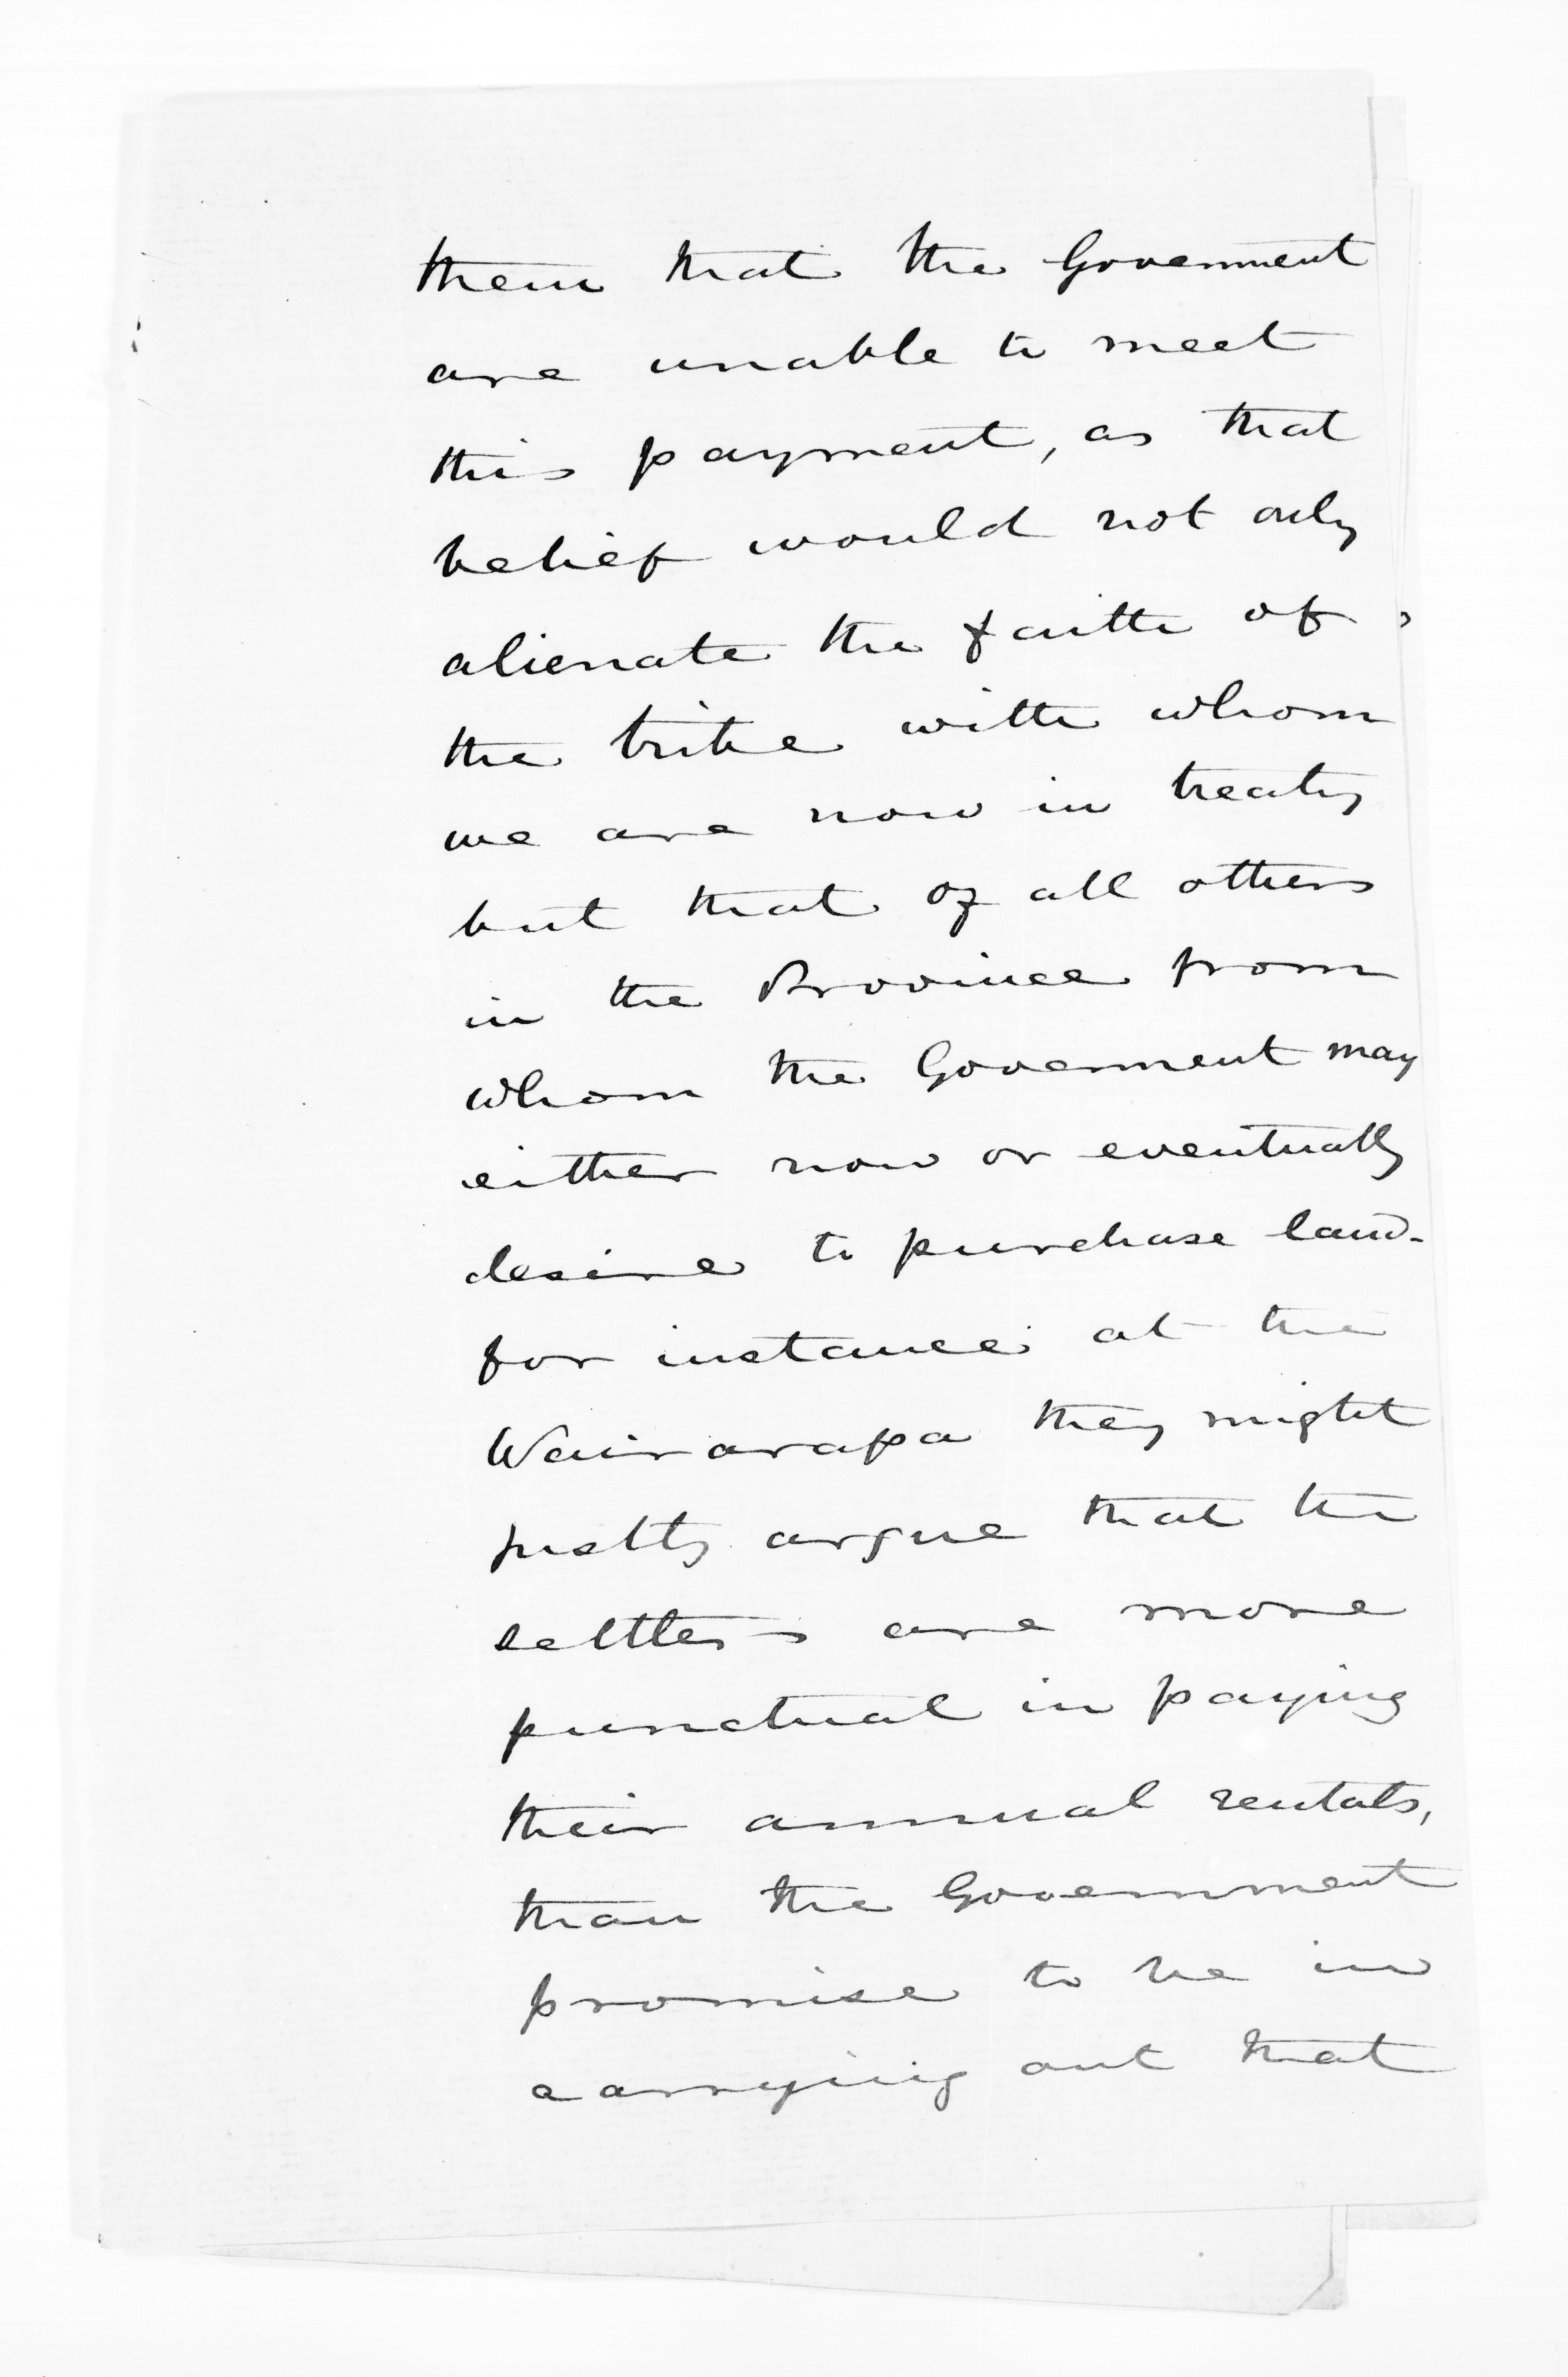 them that the Government
are unable to meet
this payment, as that
belief would not only
alienate the faith of
the tribe with whom
we are now in treaty
but that of all others
in the Province from
whom the Government may
either now or eventually
desire to purchase land.
for instance at the
Wairarapa they might
justly argue that the
settlers are more
punctual in paying
their annual rentals,
than the Government
promise to be in
carrying out that